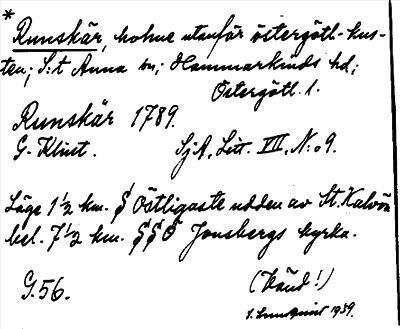 * Runskär, holme utanför östergötl-kus-
ten; S:t Anna sn; Hammarkinds hd;
Östergötl. l.
Runskär 1789.
G. Klint. SjA, Litt. VII, N:o 9.
Läge 1½ km. S Östligaste udden av St. Kalvön
bel. 7½ km. SSO Jonsbergs kyrka.
G.56. (Vänd!)
1939.